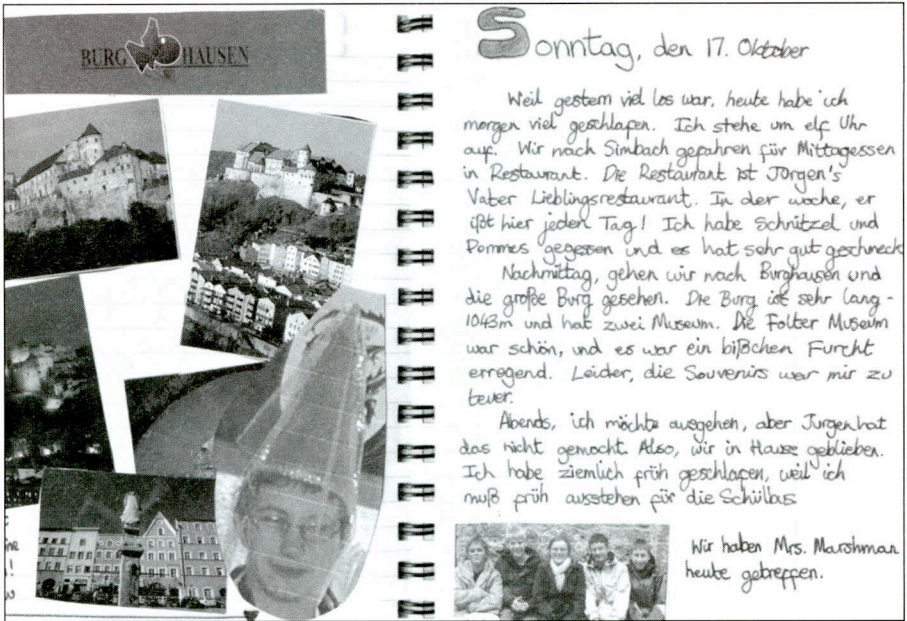 BURG HAUSEN
Sonntag, den 17. Oktober
Weil gestern viel los war, heute habe ich
morgen viel geschlafen. Ich stehe um elf Uhr
auf. Wir nach Simbach gefahren für Mittagessen
in Restaurant. Die Restaurant ist Jörgen's
Vater Lieblingsrestaurant. In der woche, er
ißt hier jeden Tag! Ich habe Schnitzel und
Pommes gegessen und es hat sehr gut geschmeck
Nachmittag, gehen wir nach Burghausen und
die große Burg gesehen. Die Burg ist sehr lang -
1043m und hat zwei Museum. Die Folter Museum
war schön, und es war ein bißchen Furcht
erregend. Leider, die Souvenirs war mir zu
teuer.
Abends, ich möchte ausgehen, aber Jurgen hat
das nicht gemocht. Also, wir in Hause geblieben.
Ich habe ziemlich früh geschlafen, weil ich
muß früh ausstehen für die Schülbus
Wir haben Mrs. Marshman
heute getreffen.